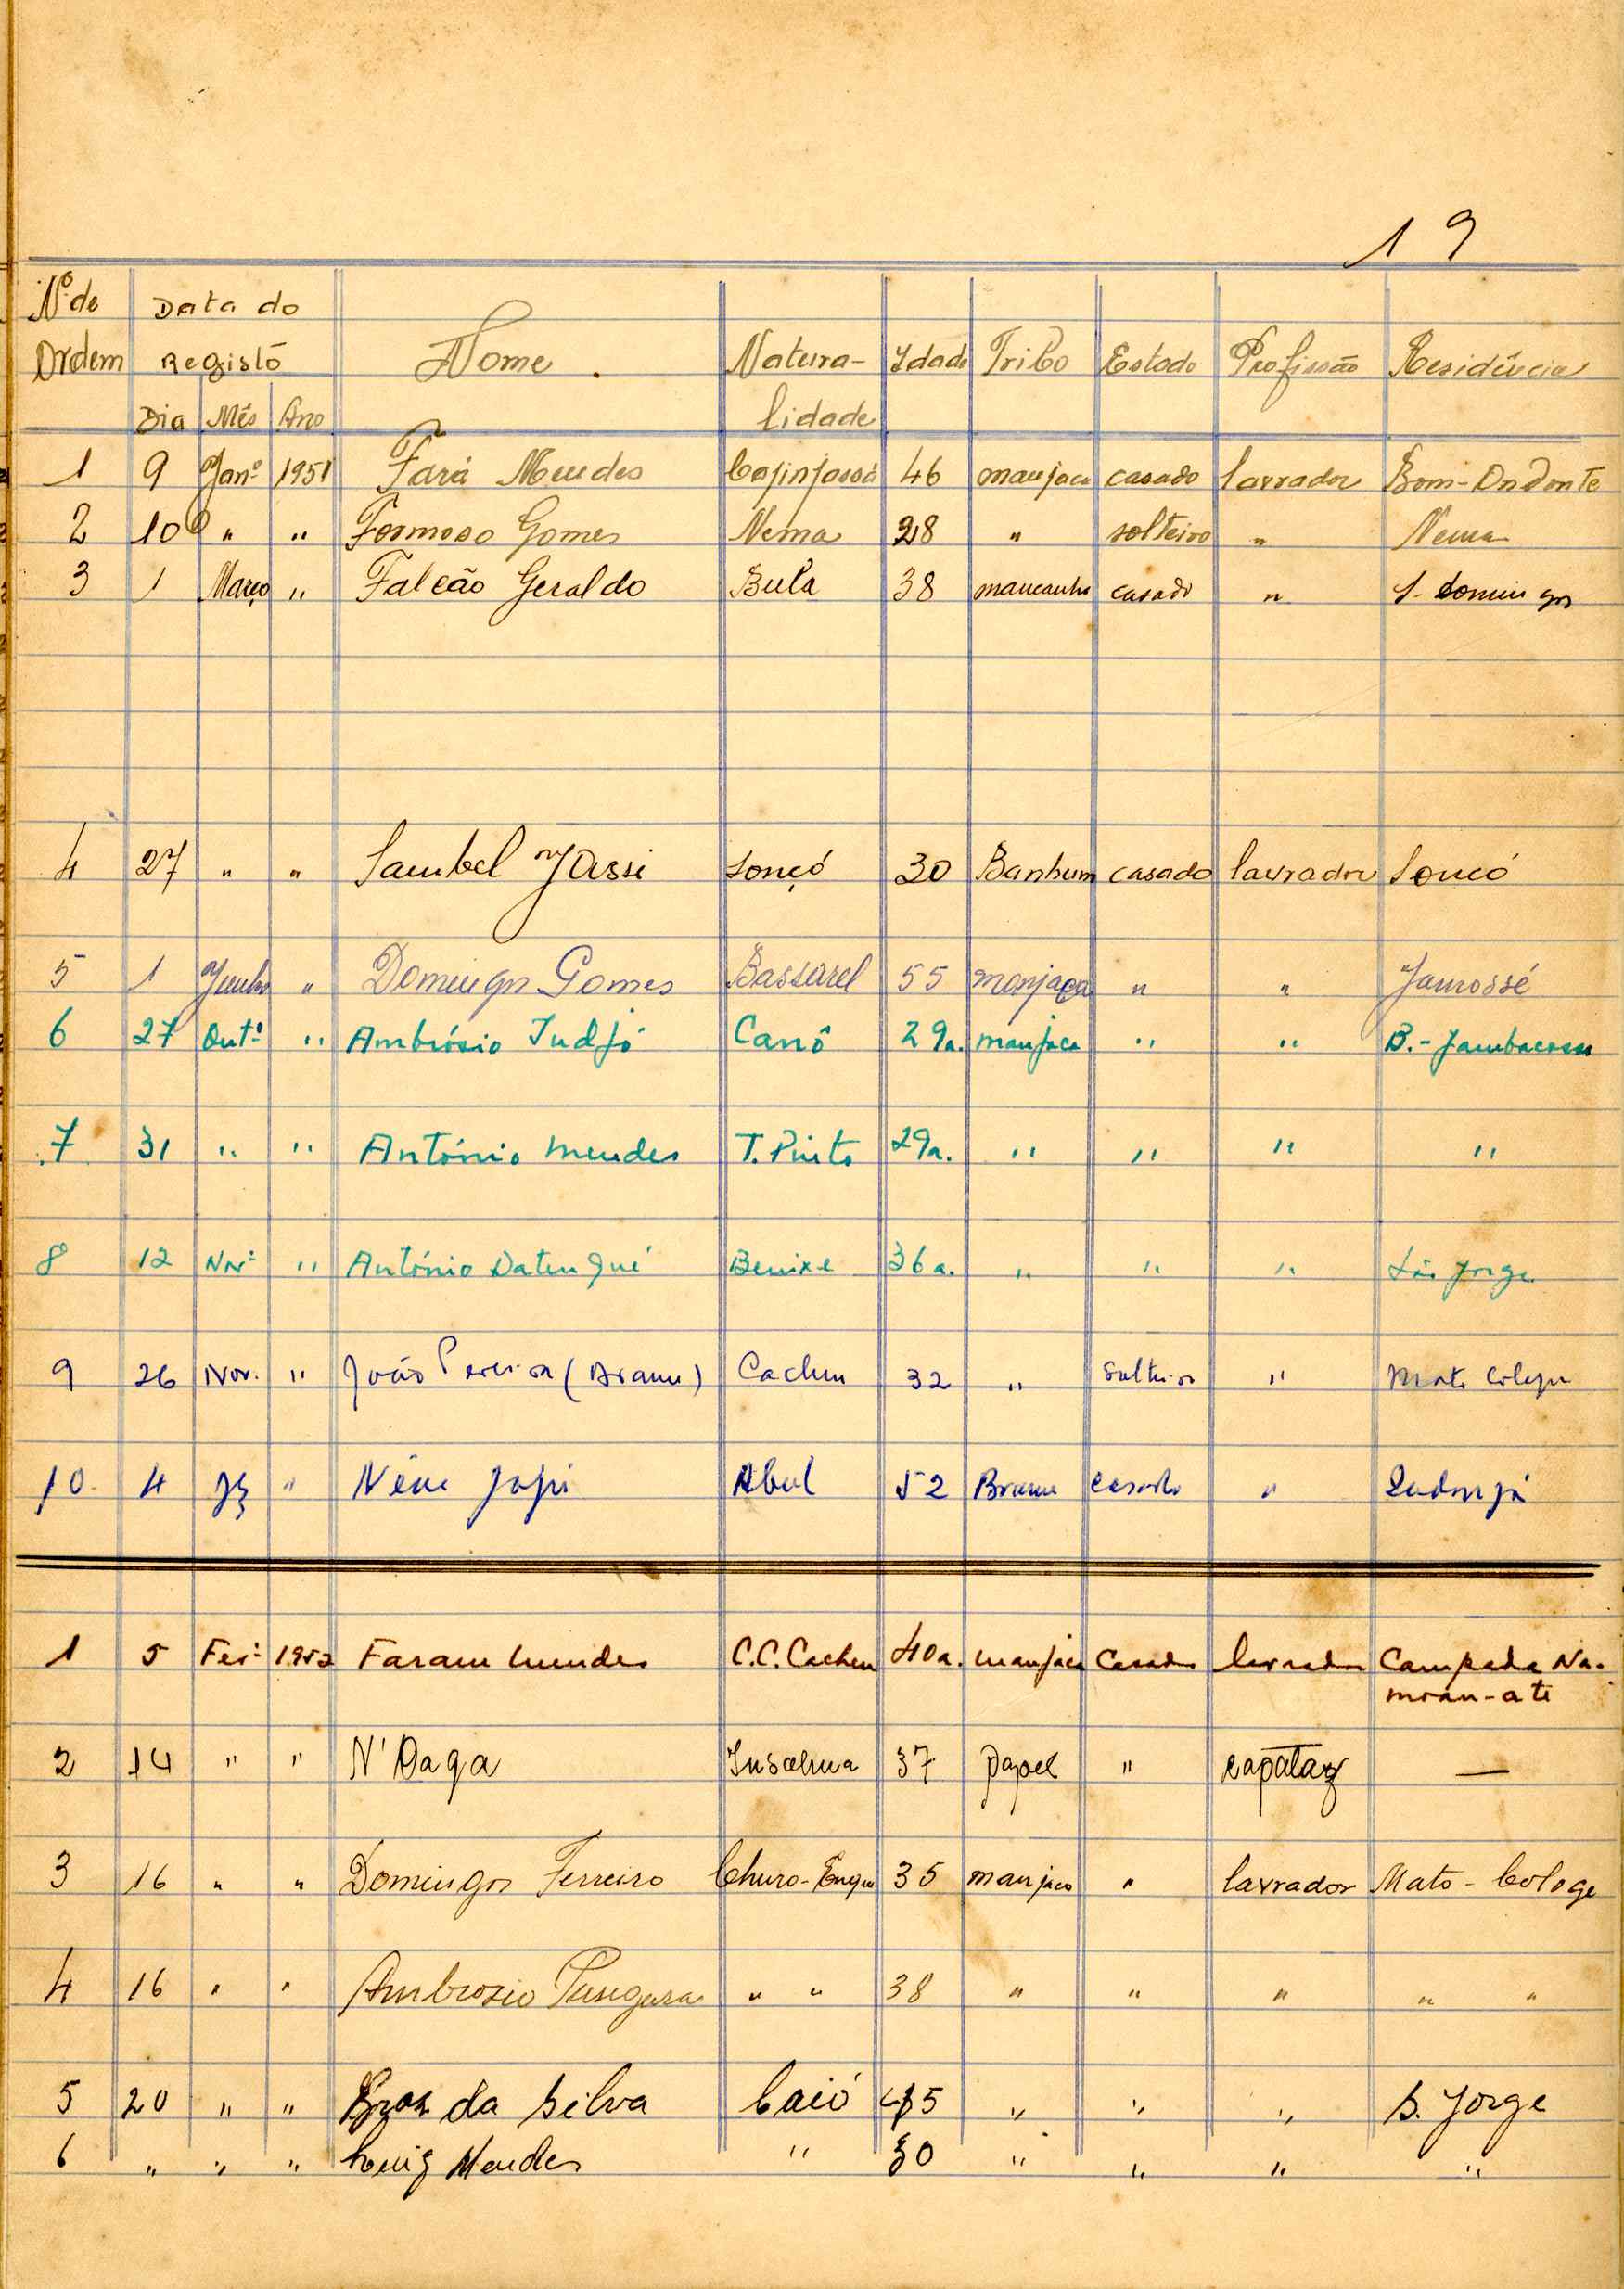 19
Nº de Data do
Ordem Registo Nome. Natura- Idade Tribo Estado Profissão Residência
Dia Mês Ano lidade
1 9 Janº 1951 Fará Mendes Cajinjassá 46 manjaca casado lavrador Bom-Ondonte
2 10 " " Formoso Gomes Nema 28 " solteiro " Nema
3 1 Março " Falcão Geraldo Bula 38 mancanha casado " S. domingos
4 27 " " Sambel Jassi Sonçó 30 Banhum casado lavrador Soncó
5 1 Junho " Domingos Gomes Bassarel 55 manjaca " " Jamossé
6 27 Outº " Ambrósio Indjó Canô 29a. manjaca " " B.-
7 31 " " António Mendes T. Pinto 29a. " " " "
8 12 Novº " António Datenqué Benixe 36 a. " " " São Jorge
9 26 Nov. " João Pereira (Brame) Cacheu 32 " Solteiro " Mato Coleje
10 4 " Abul 52 Brame Casado "
1 5 Fevº 1952 Faram Mendes C.C. Cacheu 40a. manjaca Casado lavrador Campada Na-
moan-ate
2 14 " " N'Daga 37 papel " capataz —
3 16 " " Domingos Ferreiro Churo-Enque 35 manjaco " lavrador Mato-Cologe
4 16 " " Ambrosio " " 38 " " " " "
5 20 " " Braz da Silva Caió 45 " " " S. Jorge
6 " " " Luiz Mendes " 30 " " " "